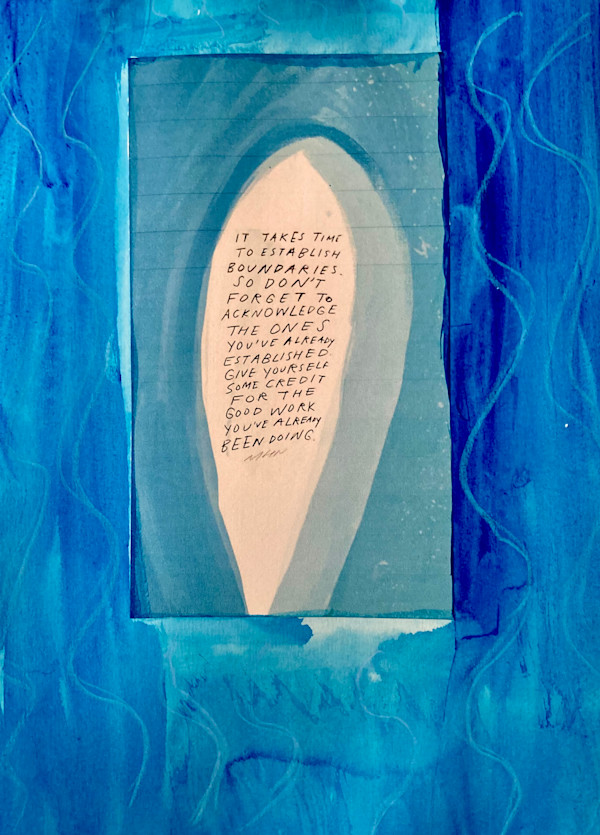 IT TAKES TIME
TO ESTABLISH
BOUNDARIES.
SO DON'T
FORGET TO
ACKNOWLEDGE
THE ONES
YOU'VE ALREADY
ESTABLISHED.
GIVE YOURSELF
SOME CREDIT
FOR THE
GOOD WORK
YOU'VE ALREADY
BEEN DOING.